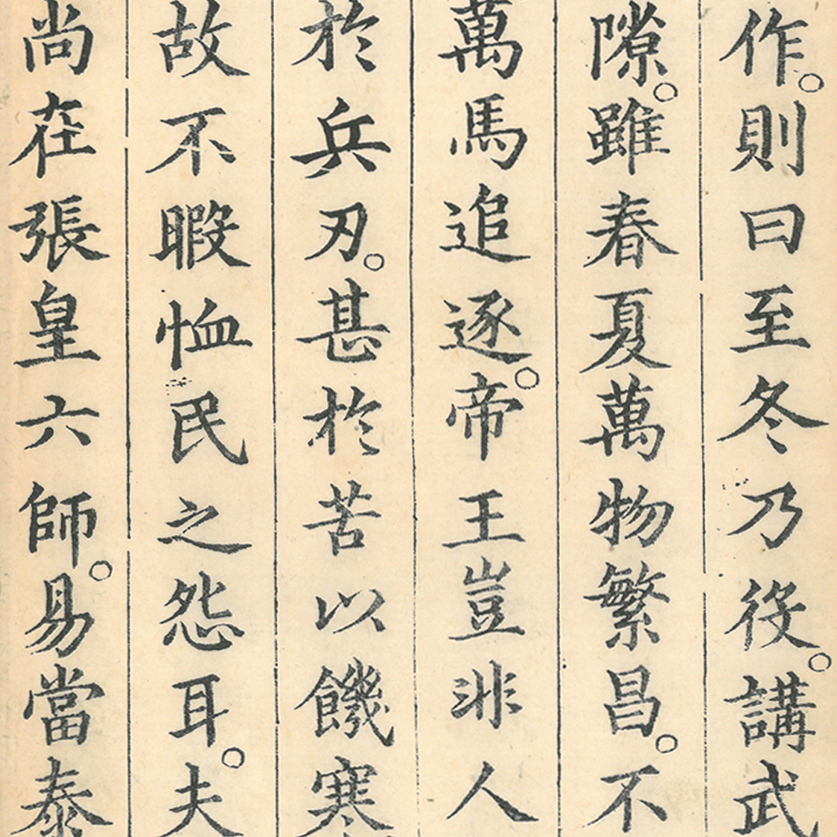 作。則曰至冬乃役。講武
隙。雖春夏萬物繁昌。不
萬馬追逐。帝王豈非人
於兵刃。甚於苦以饑寒
故不暇恤民之怨耳。夫
尚在張皇六師。易當泰